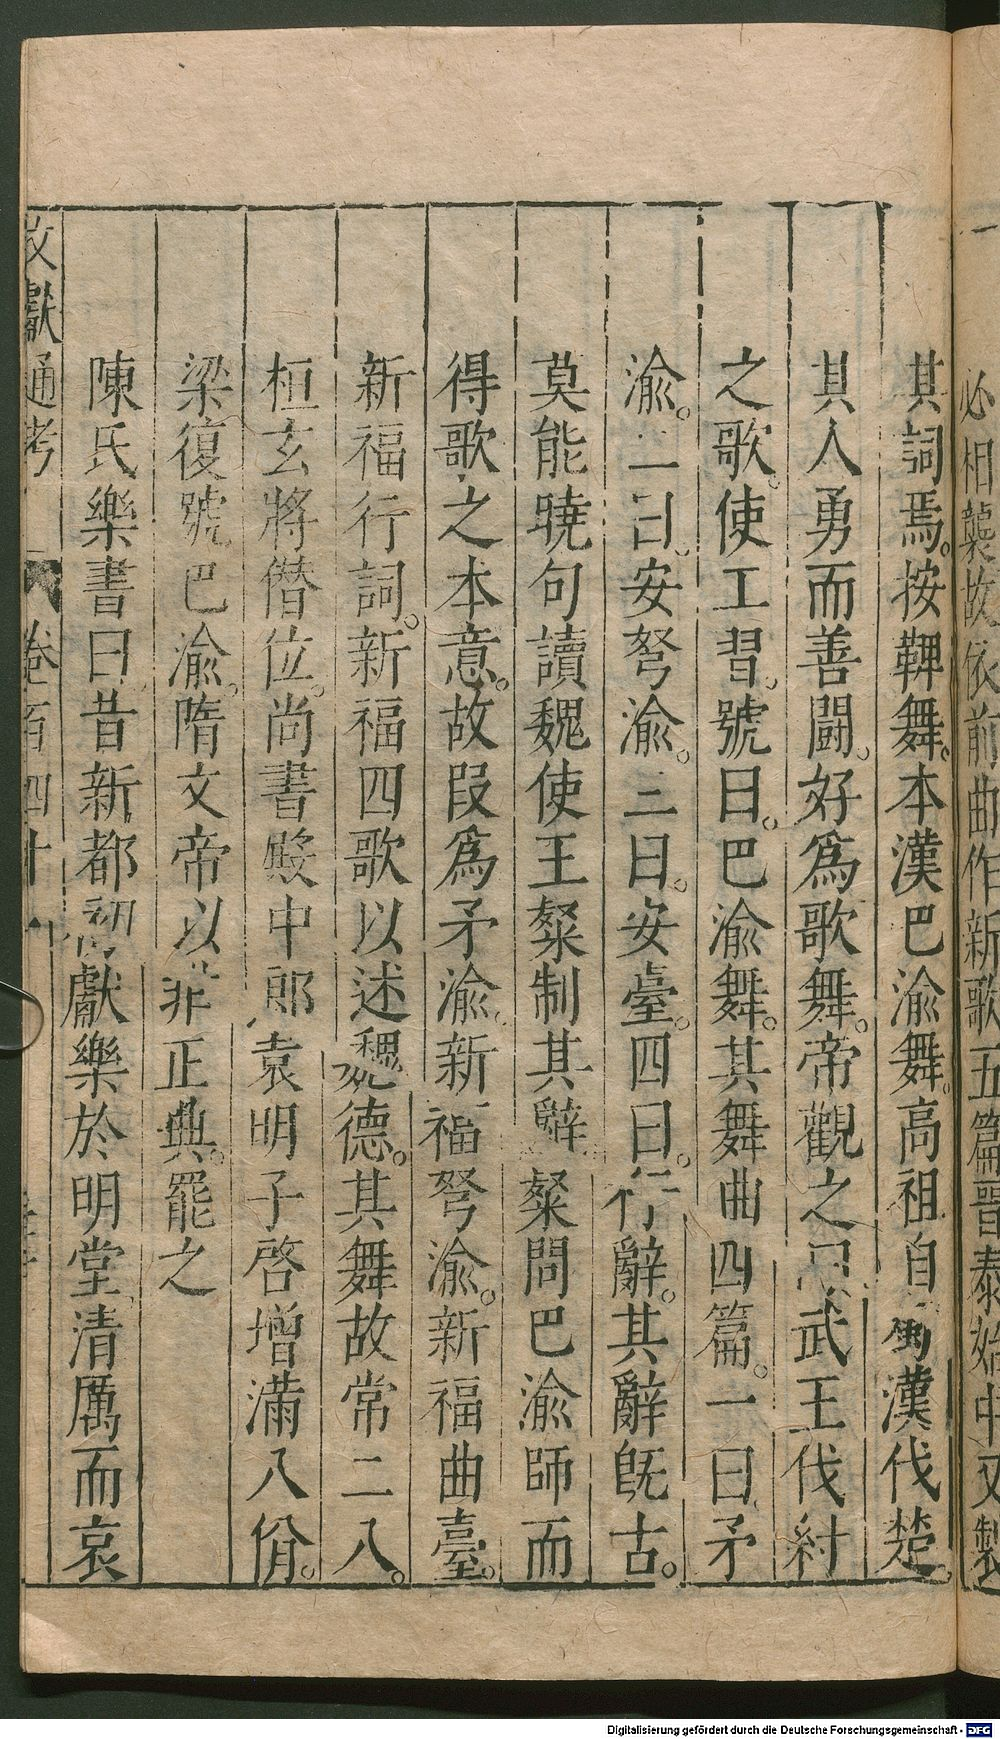 必相襲故依前曲作新歌五篇晉泰始中又製
其詞焉。按鞞舞。本漢巴渝舞。高祖自蜀漢伐楚。
其人勇而善鬪。好爲歌舞。帝觀之曰武王伐紂
之歌。使工習。號曰。巴渝舞。其舞曲四篇。一曰矛
渝。二曰安弩渝。三曰。安臺。四曰。行辭。其辭旣古。
莫能曉句讀魏使王粲制其辭粲問巴渝師而
得歌之本意。故段爲矛渝新福弩渝。新福曲臺。
新福行詞。新福四歌以述魏德。其舞故常二八。
桓玄將僭位。尚書殿中郎袁明子啓增滿八佾。
梁復號巴渝。隋文帝以非正典。罷之
陳氏樂書曰昔新都初獻樂於明堂清厲而哀
文獻通考 卷百四十
Digitalisierung gefördert durch die Deutsche Forschungsgemeinschaft - DFG